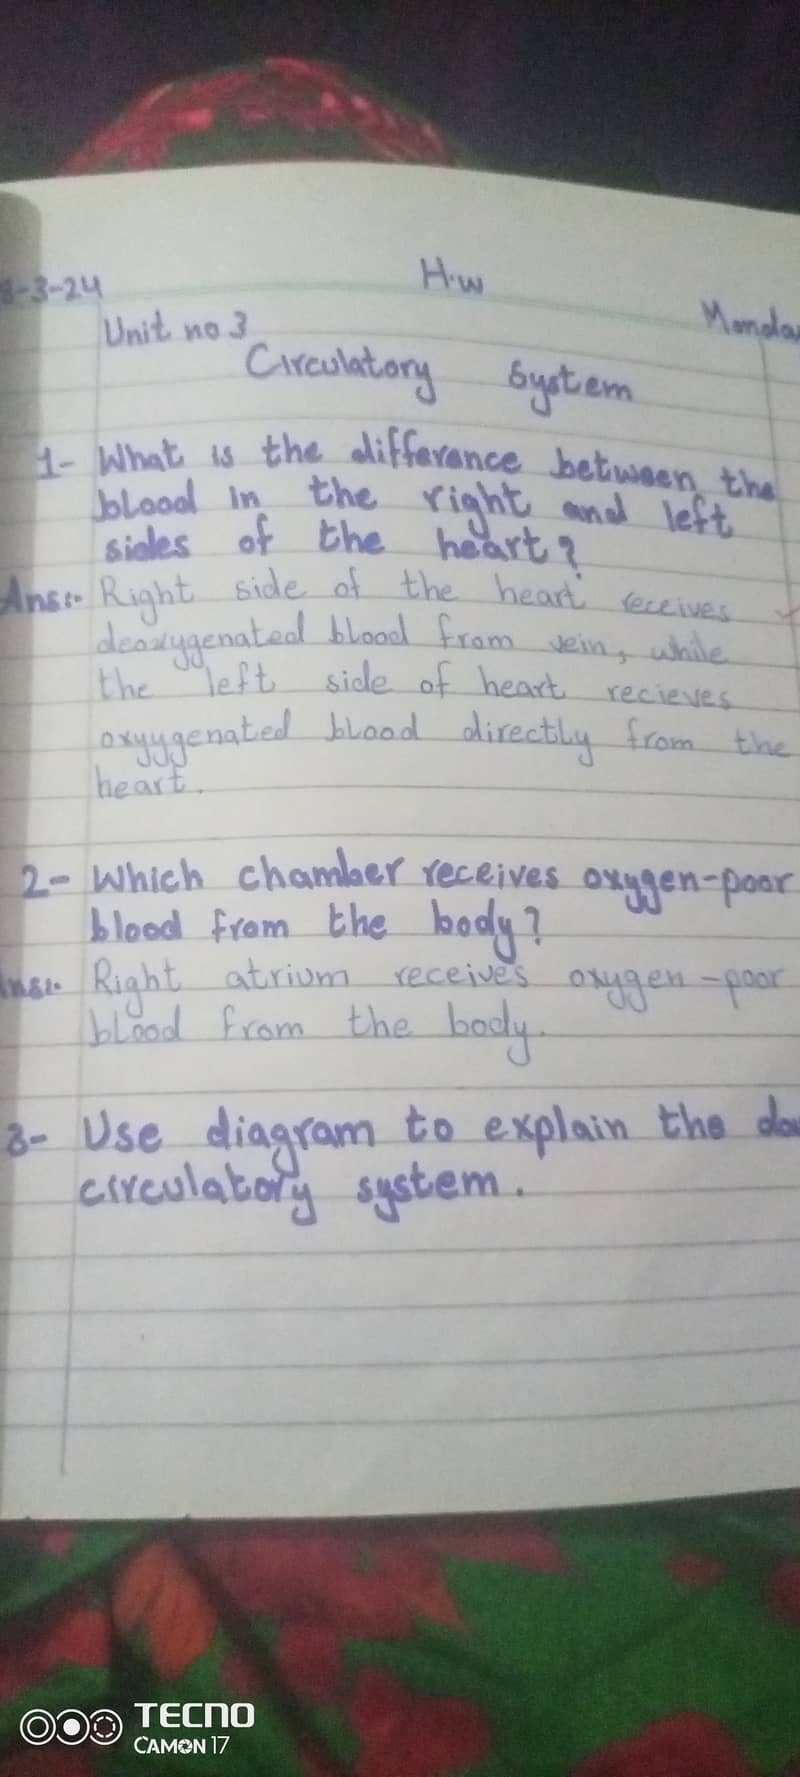 8-3-24
H.w
Monday
Unit no 3
Circulatory System
1- What is the difference between the
blood in the right and left
sides of the heart?
Ans:- Right side of the heart receives
deoxygenated blood from vein, while
the left side of heart recieves
oxyygenated blood directly from the
heart.
2- Which chamber receives oxygen-poor
blood from the body?
Ans:- Right atrium receives oxygen-poor
blood from the body.
3- Use diagram to explain the
circulatory system.
TECNO
CAMON 17